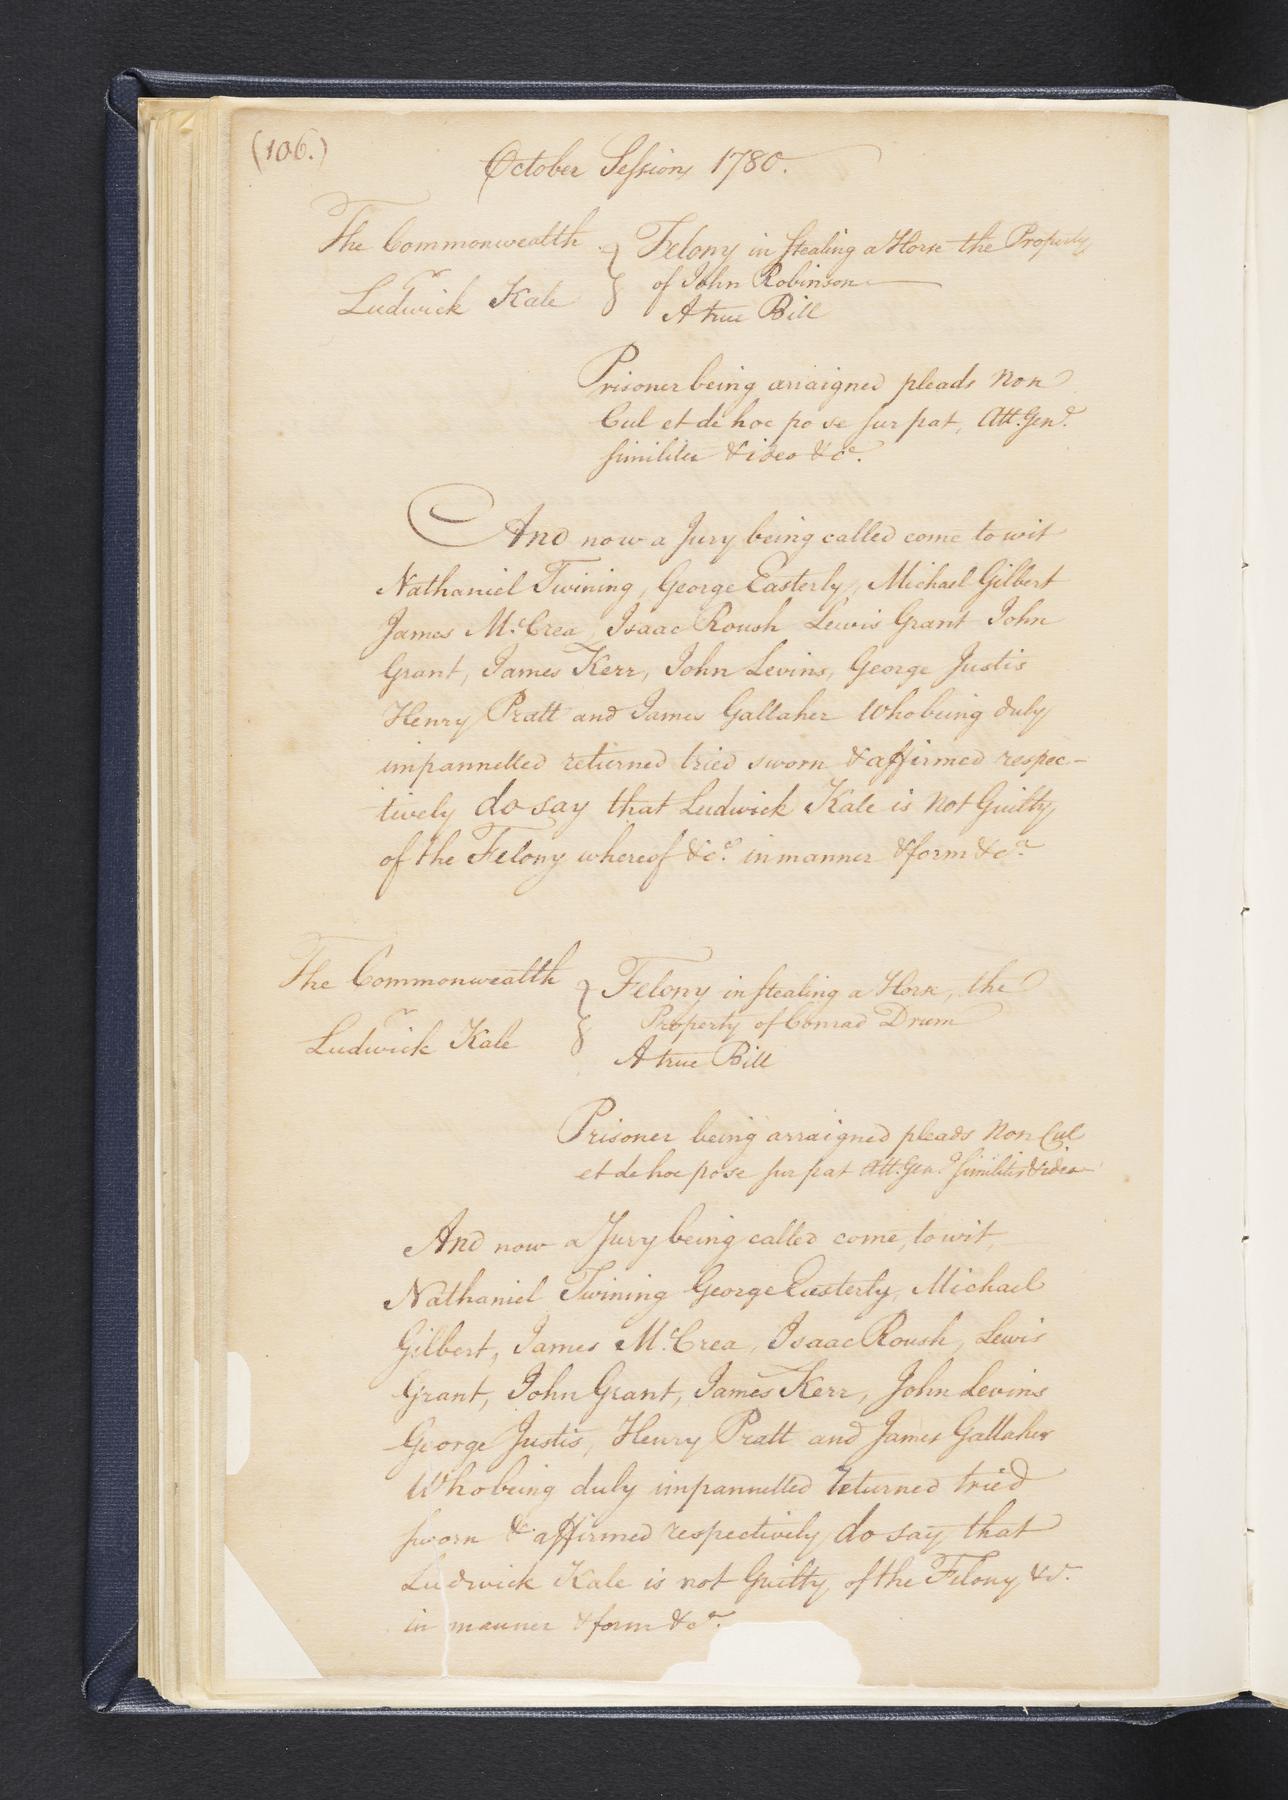 (106.)
October Sessions 1780.
The Commonwealth
vr
Ludwick Kale
Felony in stealing a Horse the Property
of John Robinson
A true Bill
Prisoner being arraigned pleads Non
Cul et de hoc po se sur pat, Att. Genl.
similiter & ideo &ca.
And now a Jury being called come to wit
Nathaniel Twining, George Easterly, Michael Gilbert
James McCrea, Isaac Roush Lewis Grant John
Grant, James Kerr, John Levins, George Justis
Henry Pratt and James Gallaher Who being duly
impannelled returned tried sworn & affirmed respec-
tively do say that Ludwick Kale is Not Guilty
of the Felony whereof &ca. in manner & form &ca
The Commonwealth
vr
Ludwick Kale
Felony in stealing a Horse, the
Property of Conrad Drum
A true Bill
Prisoner being arraigned pleads Non Cul
et de hoc po se sur pat Att. Genl. similiter & ideo
And now a Jury being called come, to wit,
Nathaniel Twining George Easterly, Michael
Gilbert, James McCrea, Isaac Roush, Lewis
Grant, John Grant, James Kerr, John Levins
George Justis, Henry Pratt and James Gallaher
Who being duly impannelled returned tried
sworn & affirmed respectively do say that
Ludwick Kale is not Guilty of the Felony &c.
in manner & form &ca.